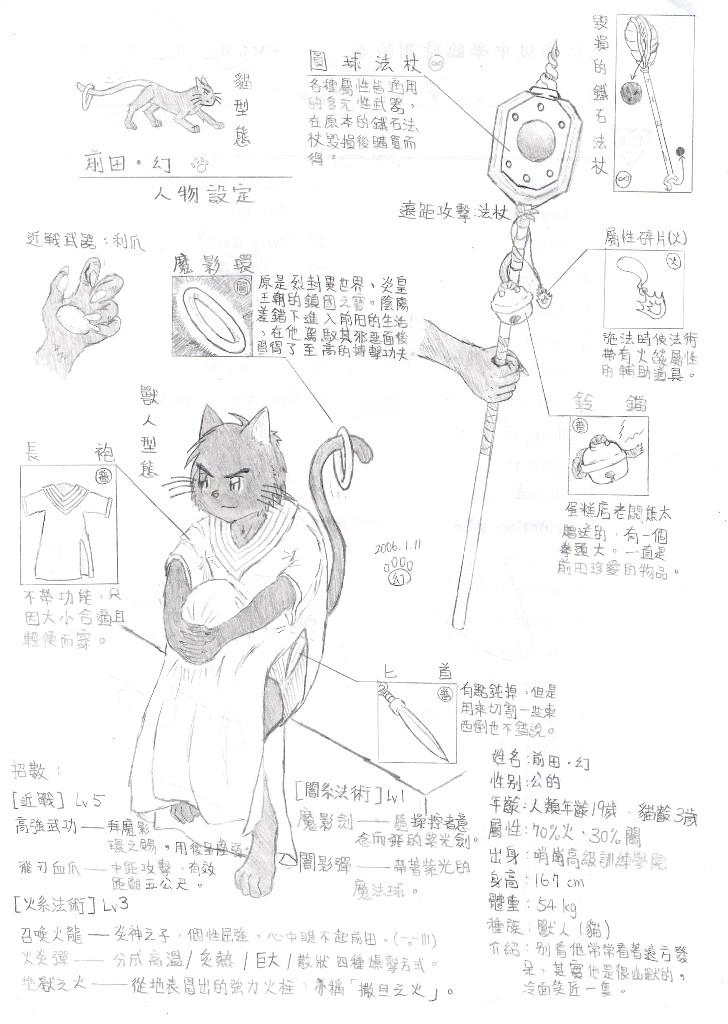 貓型態
前田·幻
人物設定
圓球法杖
各種屬性皆適用
的多元性武器，
在原本的鐵石法
杖毀損後購買而
得。
毀損的鐵石法杖
遠距攻擊：法杖
近戰武器：利爪
魔影環
原是烈封異世界、炎皇
王朝的鎮國之寶。陰陽
差錯下進入前田的生活
，在他駕馭其邪惡面後
習得了至高的搏擊功夫。
屬性碎片(火)
火
施法時使法術
帶有火燄屬性
的輔助道具。
獸人型態
長袍
不帶功能，只
因大小合適且
輕便而穿。
鈴鐺
蛋糕店老闆熊太
贈送的，有一個
拳頭大。一直是
前田珍愛的物品。
2006.1.11
幻
匕首
有點鈍掉，但是
用來切割一些東
西倒也不錯說。
招數：
[近戰] Lv5
高強武功——拜魔影
環之賜。
飛刃血爪——中距攻擊，有效
距離五公尺。
[火系法術] Lv3
召喚火龍——炎神之子，個性屈強。心中瞧不起前田。(ˉ_ˉ|||)
火炎彈——分成高溫/炙熱/巨大/散狀四種爆擊方式。
地獄之火——從地表冒出的強力火柱，亦稱「撒旦之火」。
[闇系法術] Lv1
魔影劍——隨操控者意
念而飛的紫光劍。
闇影彈——帶著紫光的
魔法球。
姓名：前田·幻
性別：公的
年齡：人類年齡19歲、貓齡3歲
屬性：70%火、30%闇
出身：哨崗高級訓練學院
身高：167 cm
體重：54 kg
種族：獸人(貓)
介紹：別看他常常看著遠方發
呆，其實他是很幽默的。
冷面笑匠一隻。